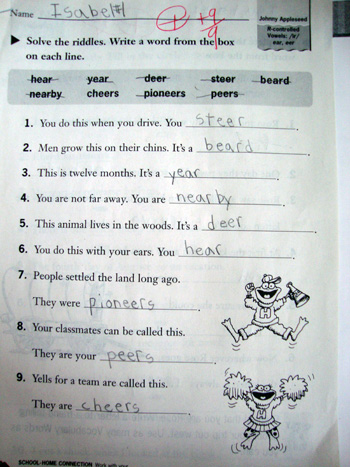 Name Isabel
+9/9
Johnny Appleseed
R-controlled
Vowels: /ir/
ear, eer
▶ Solve the riddles. Write a word from the box
on each line.
hear year deer steer beard
nearby cheers pioneers peers
1. You do this when you drive. You steer.
2. Men grow this on their chins. It's a beard.
3. This is twelve months. It's a year.
4. You are not far away. You are nearby.
5. This animal lives in the woods. It's a deer.
6. You do this with your ears. You hear.
7. People settled the land long ago.
They were pioneers.
8. Your classmates can be called this.
They are your peers.
9. Yells for a team are called this.
They are cheers.
H
H
SCHOOL-HOME CONNECTION Work with your